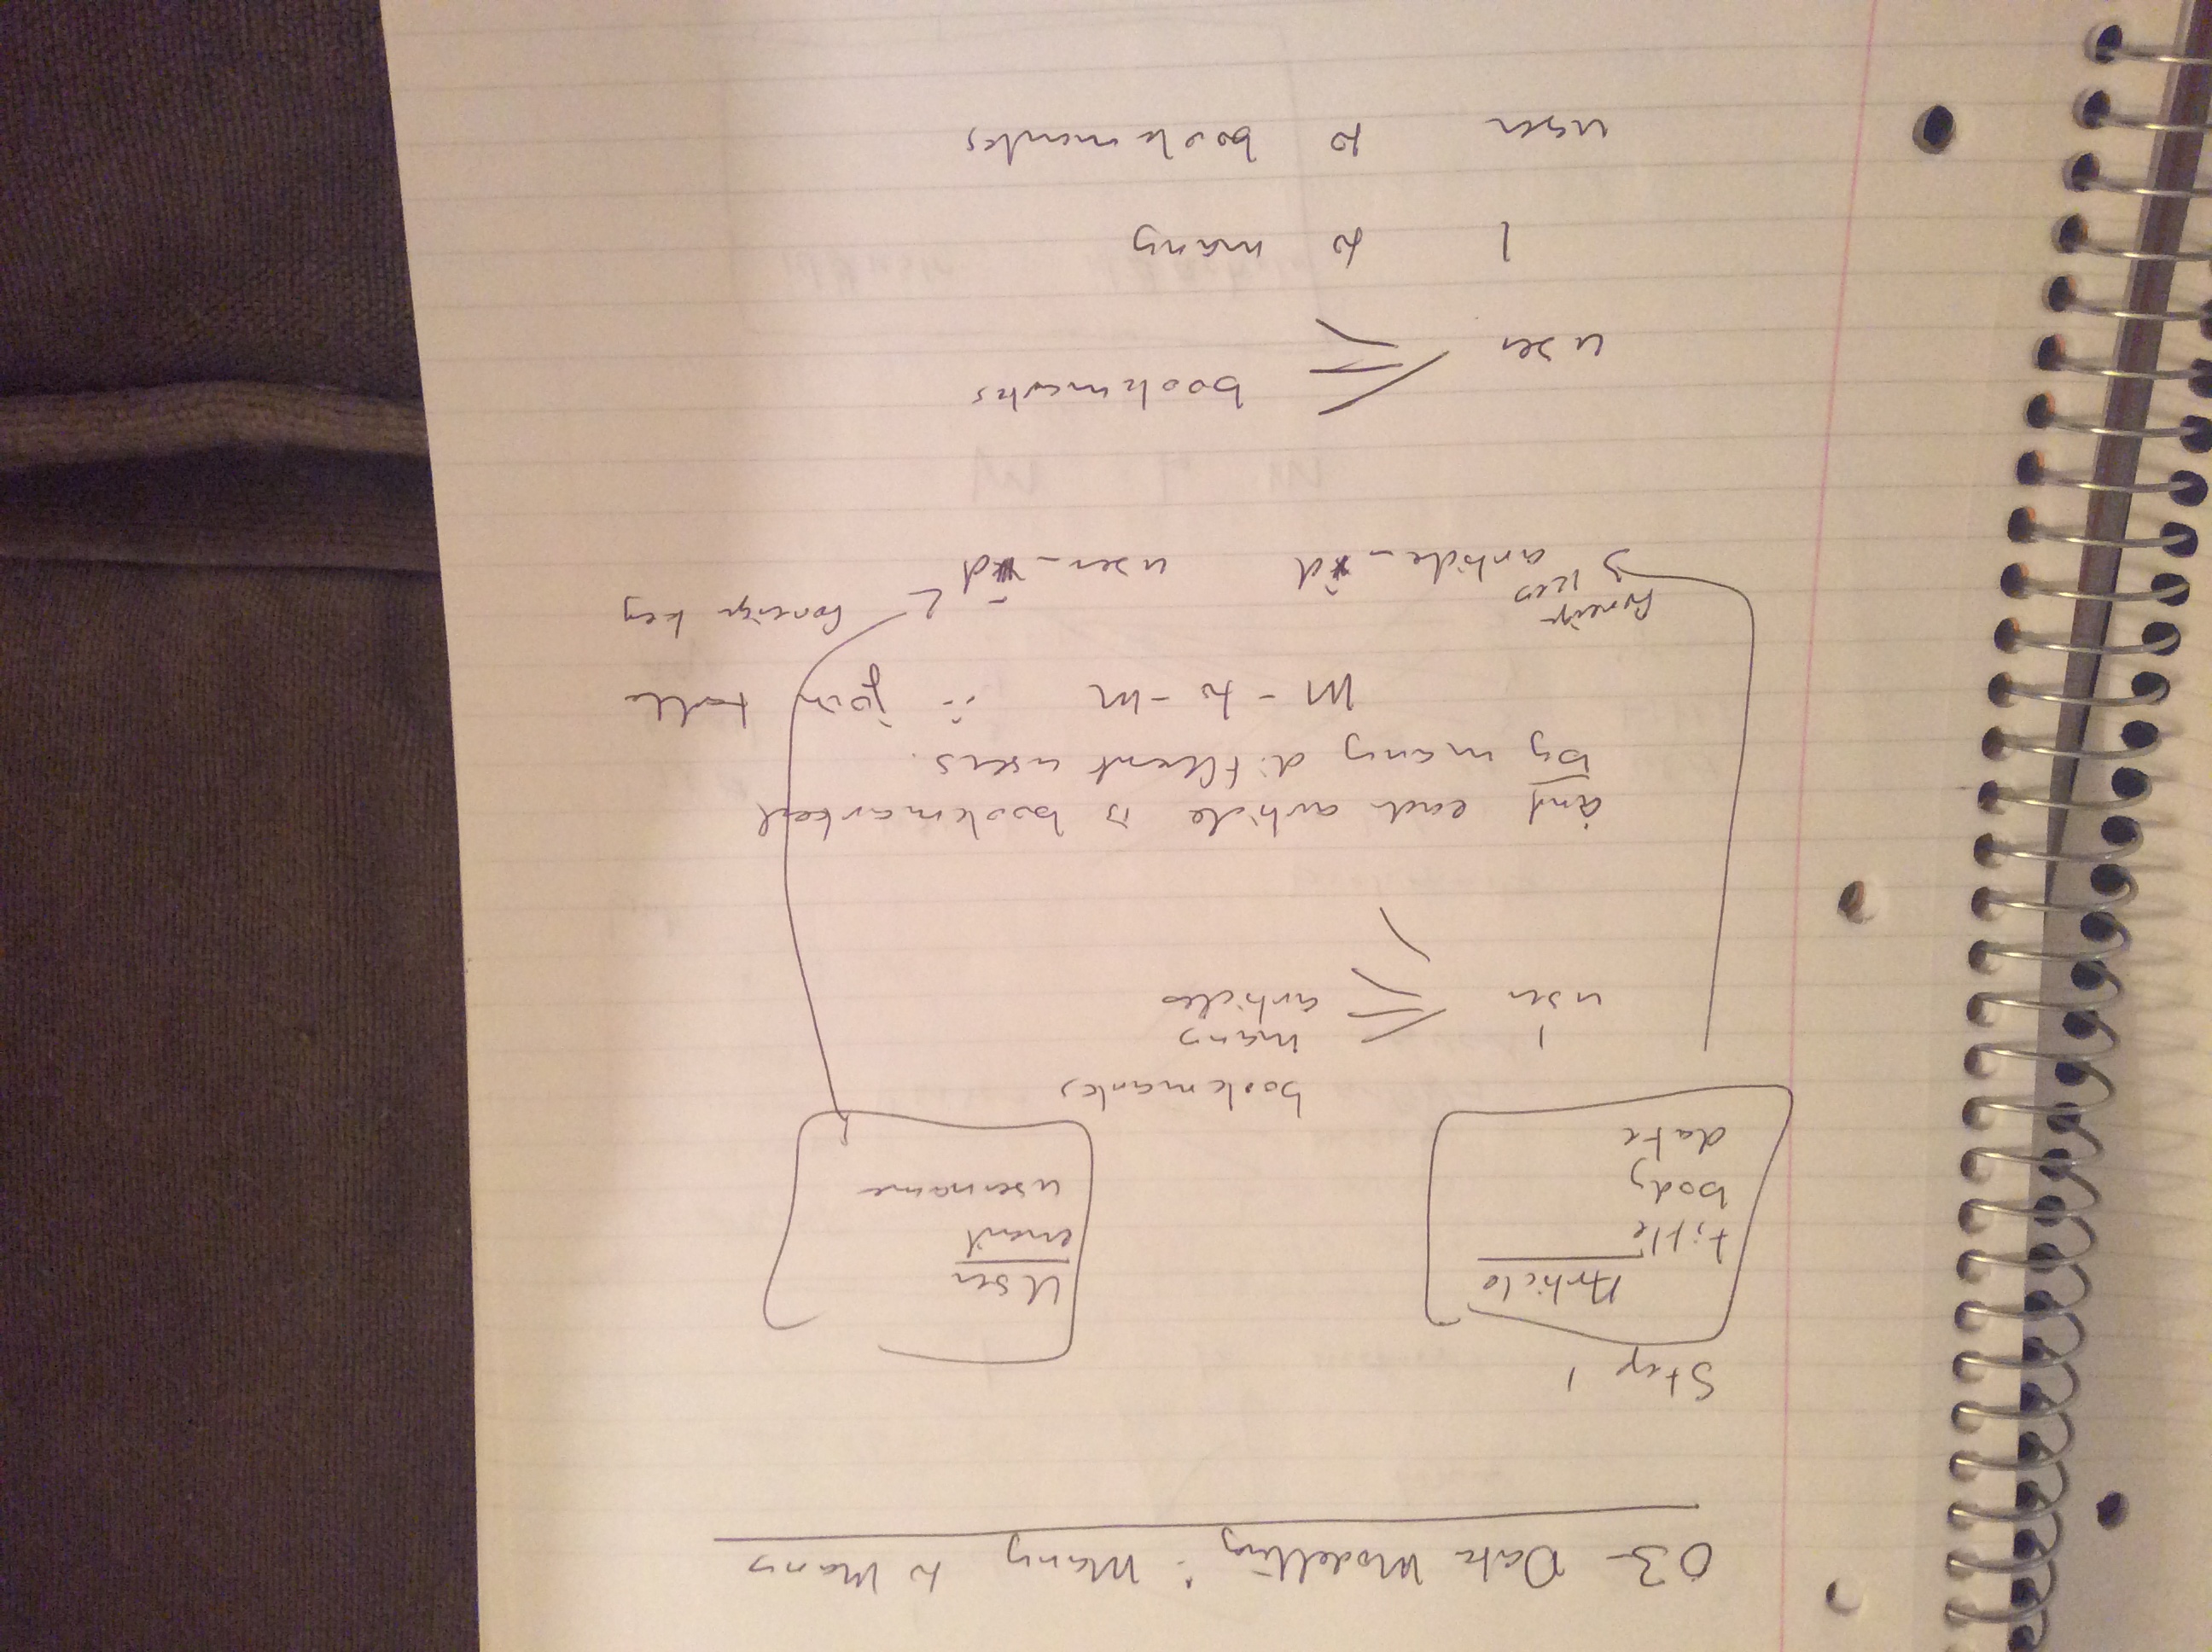 03- Data Modelling : Many to Many
Step 1
Article
title
body
date
User
email
username
1
user
bookmarks
many
articles
and each article is bookmarked
by many different users.
M - to - M ∴ join table
foreign
key
article_id
user_id
foreign key
user
bookmarks
1 to many
user to bookmarks